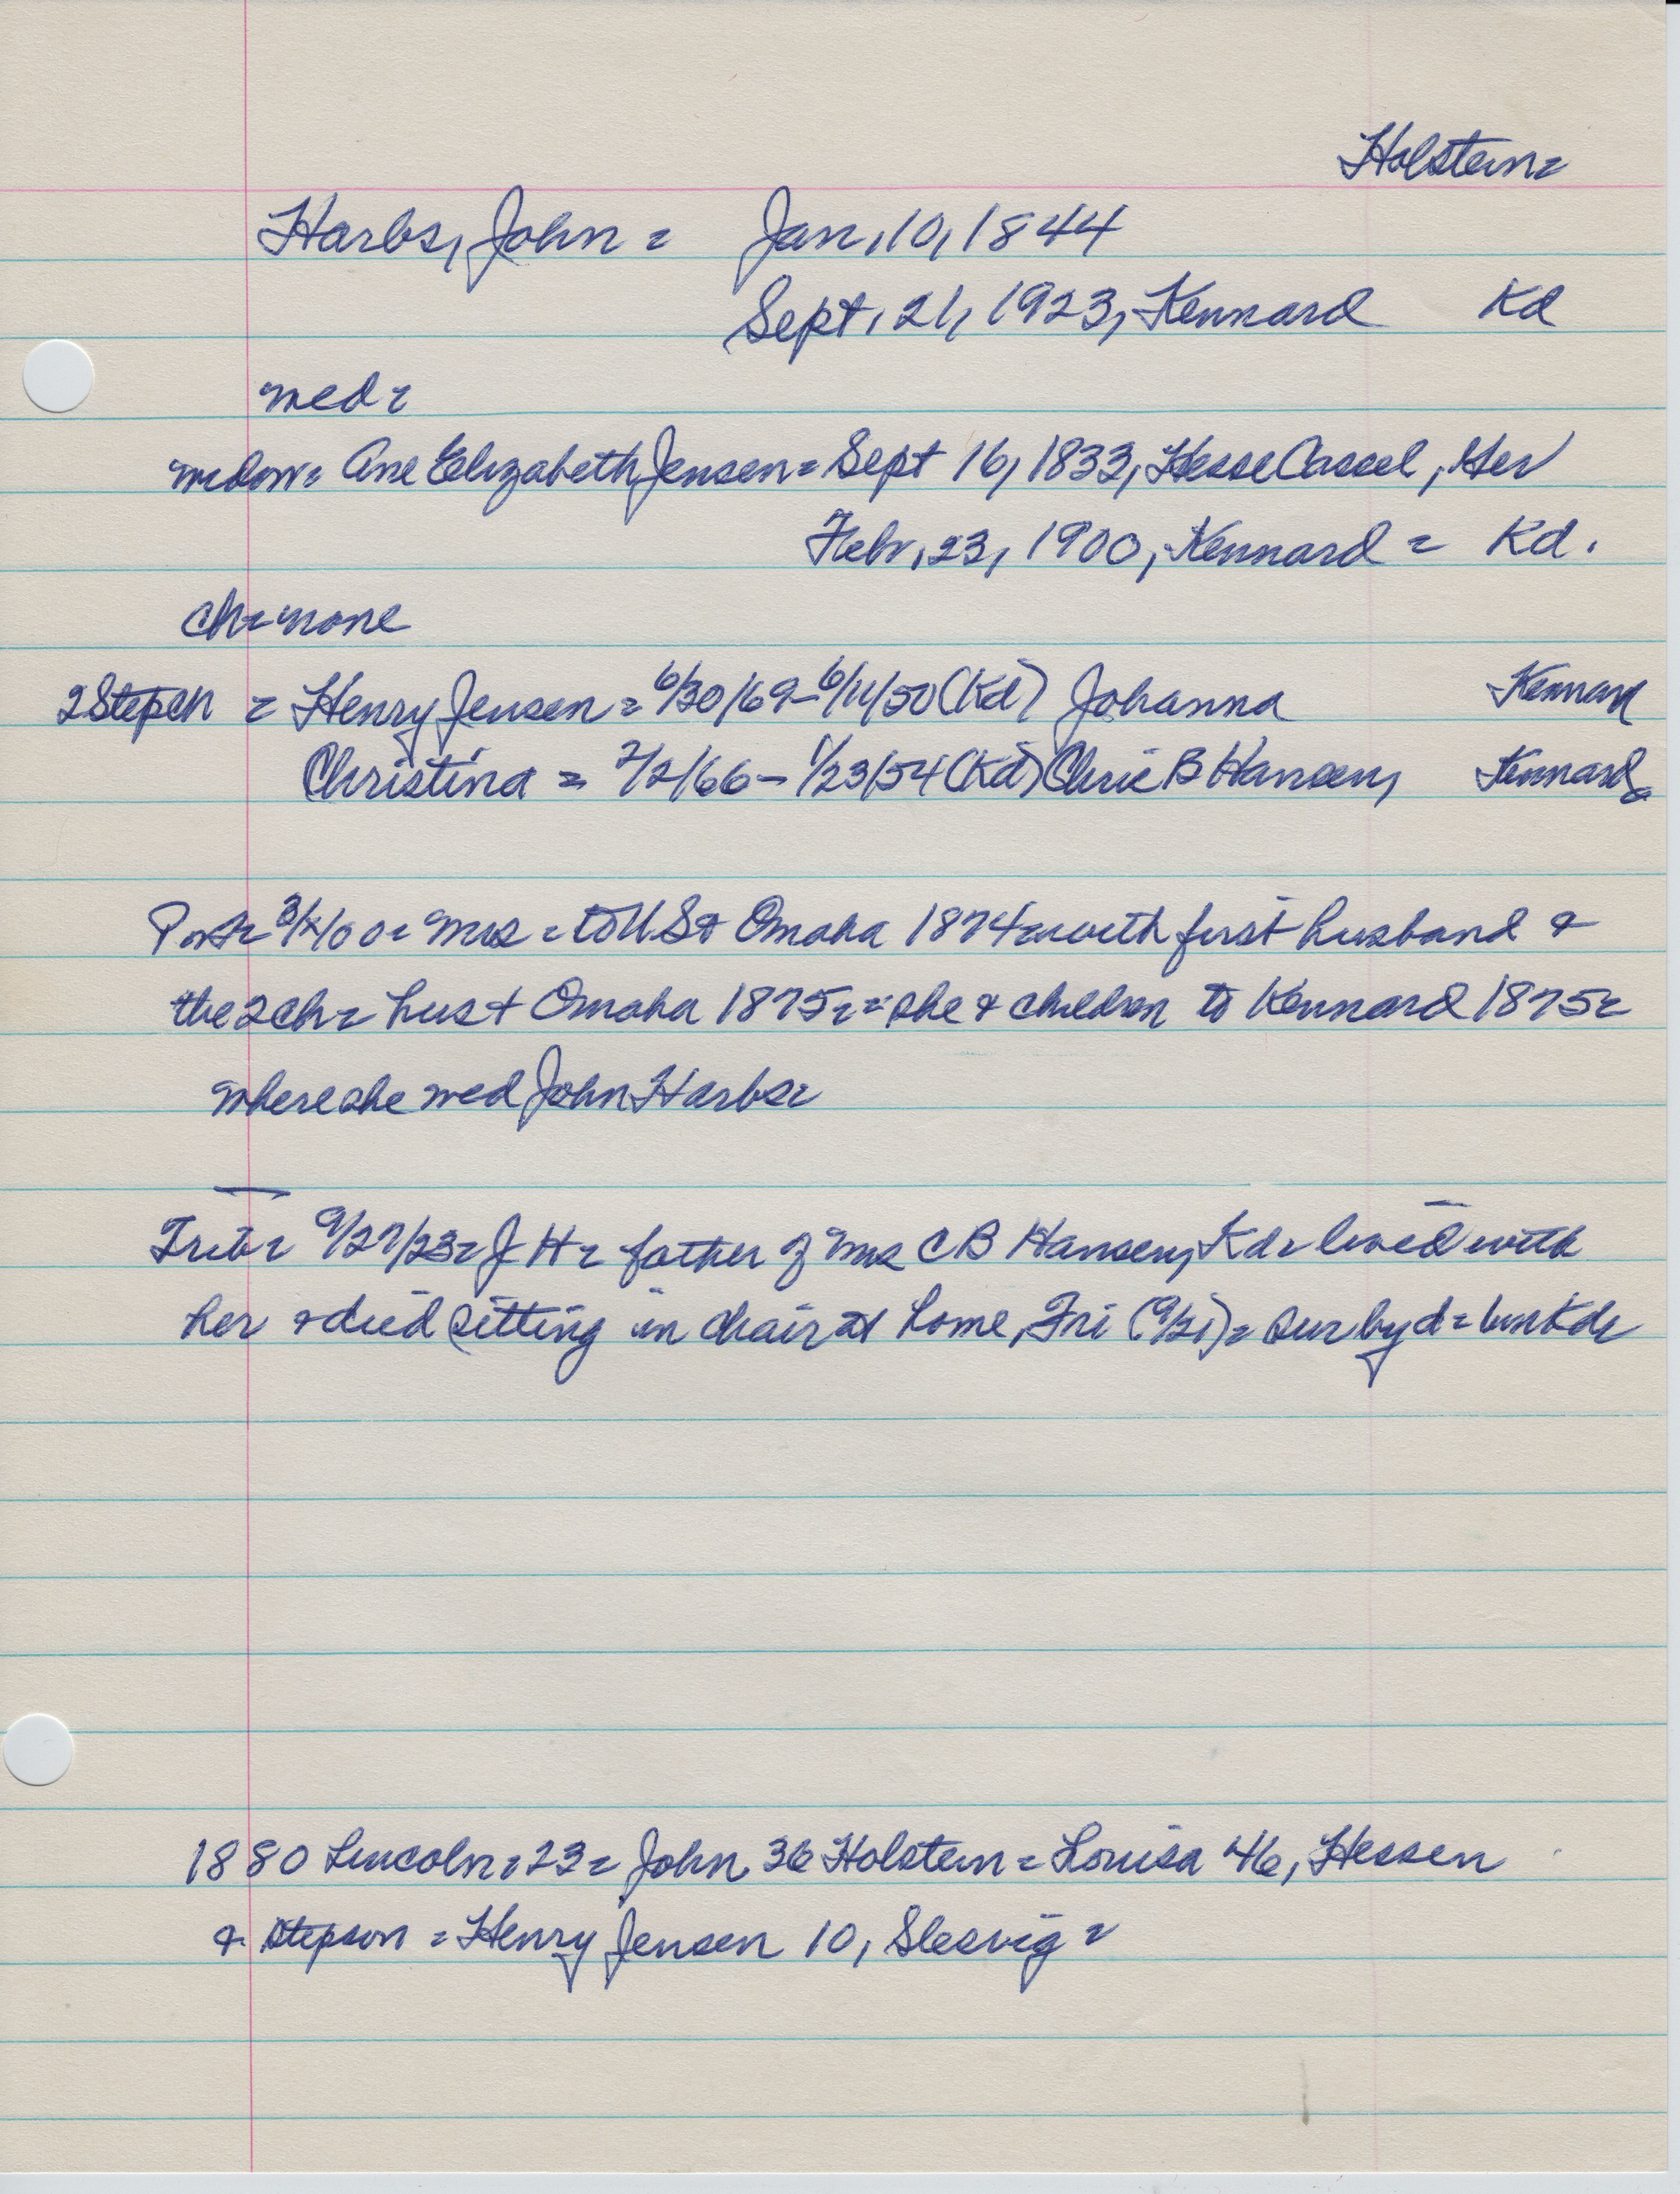 Holstein=
Harbs, John = Jan, 10, 1844
Sept, 21, 1923, Kennard Kd
wed=
widow= Ane Elizabeth Jensen= Sept 16, 1833, Hesse Cassel, Ger
Febr, 23, 1900, Kennard = Kd.
ch= none
2 Stepch = Henry Jensen = 6/30/69-6/11/50 (Kd) Johanna Kennard
Christina = 2/2/66- 1/23/54 (Kd) Chris B Hansen, Kennard
= Mrs = to US & Omaha 1874= with first husband &
the 2 ch= hus + Omaha 1875= = she & children to Kennard 1875=
where she wed John Harbs=
Trib= 9/27/23= J H = father of Mrs C B Hansen, Kd= lived with
her & died sitting in chair at home, Fri (9/21)= sur by d= bur Kd=
1880 Lincoln= 23= John 36 Holstein = Louisa 46, Hessen
& stepson = Henry Jensen 10, Slesvig =